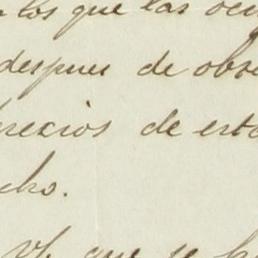 que las
despues de obse
precios de esta
cho.
que se